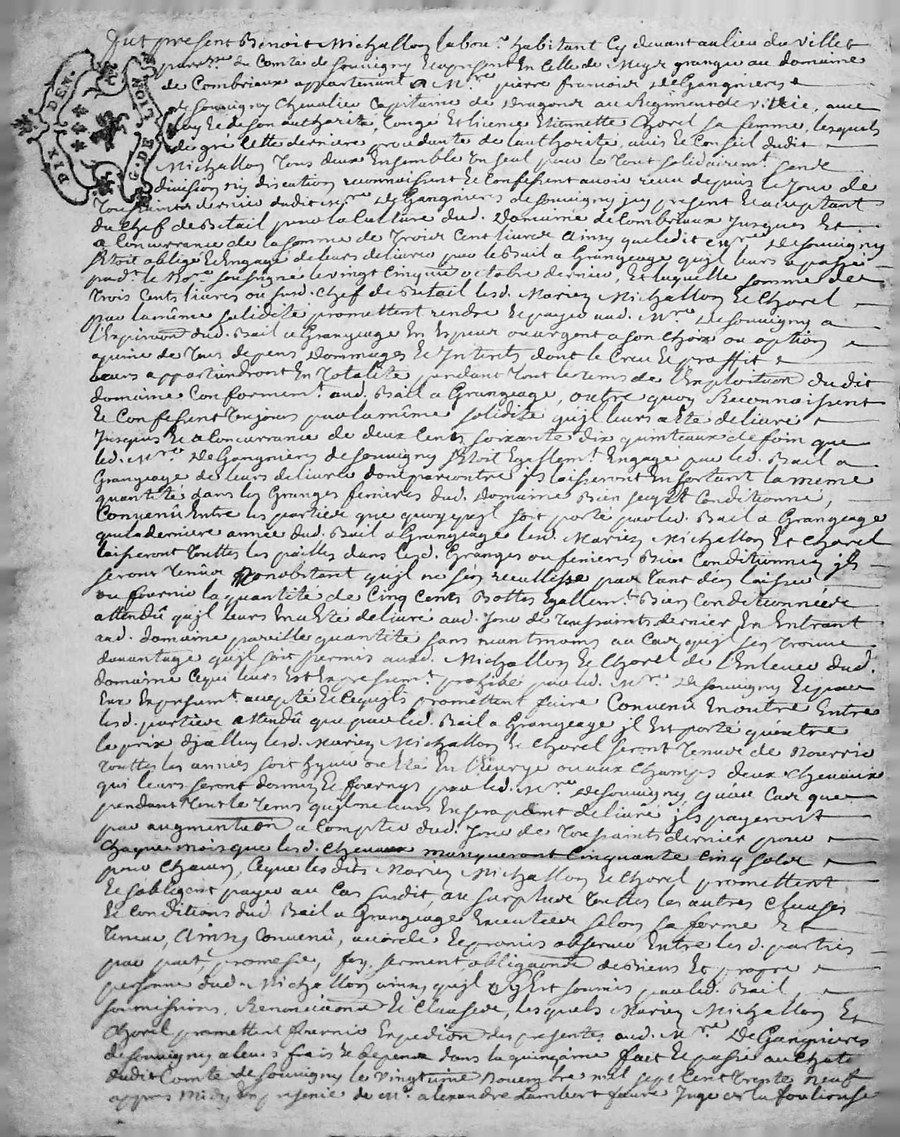 DIX DEN.
G. DE LION
Fut present Benoit Michallon labour. habitant Cy devant au lieu du Villet
parr.se du Comté de Souvigny Et apresent En Celle de Meys granger au domaine
de Combriaux appartenant a M.re pierre francois DeGangnieres
de Souvigny Chevalier Capitaine de Dragons au Regiment de Vitrie, avec
luy Et de son authorité, Congé Et licence Etiennette Chorel sa femme, lesquels
de gré Cette derniere procedante de l'authorité, avis Et Conseil dudit
Michallon Tous deux Ensemble Un seul pour le Tout solidairem.t sans
division ny discution reconnoissent Et Confessent avoir receu depuis le Jour de
Toussaints dernier dudit M.re DeGangnieres de Souvigny icy present Et acceptant
du Chef de Betail pour la Culture dud. Domaine de Combriaux Jusques Et
a Concurrance de la somme de Trois Cent livres Ainsy que ledit M.re DeSouvigny
s'Etoit obligé Et Engagé de leurs delivrer par le Bail a Grangeage qu'il leurs a passé
pard.t le No.re soussigné le vingt Cinquieme octobre dernier, Et laquelle somme de
Trois Cents livres ou susd. Chef de Betail lesd. Mariez Michallon Et Chorel
par la même solidité promettent rendre Et payer aud. M.re DeSouvigny a
l'Expiration dud. Bail a Grangeage En Espece ou argent a son Choix ou option
a peine de Tous depens Dommages Et Interets dont le Creu Et proffit
leurs appartiendront En Totalité pendant Tout le tems de l'Exploitation du dit
domaine Conformem.t aud. Bail a Grangeage, outre quoy Reconnoissent
Et Confessent Toujours par la même solidité qu'il leurs a Eté delivré
Jusques Et a Concurrance de deux Cents soixante dix quinteaux de foin que
led. M.re DeGangnieres de Souvigny s'Etoit Egallem.t Engagé par led. Bail a
Grangeage de leurs delivrer dont par contre ils laisseront En sortant la meme
quantité dans les Granges fenieres dud. Domaine Bien sec Et Conditionné,
Convenû Entre les parties que quoy qu'il soit porté par led. Bail a Grangeage
qu'a la derniere année dud. Bail a Grangeage lesd. Mariez Michallon Et Chorel
laisseront Touttes les pailles dans lesd. Granges ou fenieres Bien Conditionnées ils
seront Tenûs Nonobstant qu'il ne s'en receullisse pas Tant d'en laisser
ou fournir la quantité de Cinq Cents Bottes Egallem.t Bien Conditionnées
attendû qu'il leurs En a Eté delivré aud. Jour de Toussaints dernier En Entrant
aud. Domaine pareille quantité sans neantmoins au Cas qu'il s'en Trouve
davantage qu'il soit permis auxd. Michallon Et Chorel de l'Enlever dud.
domaine Ce qui leurs Est Expressem.t prohibé par led. M.re DeSouvigny Et par
Eux Expressem.t accepté Et Ce qu'ils promettent faire Convenû En outre Entre
lesd. parties attendû que par led. Bail a Grangeage il Est porté qu'outre
le prix d'jcelluy lesd. Mariez Michallon Et Chorel seront Tenus de Nourrir
Touttes les années soit hyver ou Eté En l'Ecurye ou aux Champs deux Chevaux
qui leurs seront donnez Et fournys par led. M.re DeSouvigny, qu'au Cas que
pendant Tout le Tems qu'il ne leurs En sera point delivré ils payeront
par augmentation a Compter dud. Jour de Toussaints dernier pour
Chaque mois que lesd. Chevaux manqueront Cinquante Cinq solds
pour Chacun, Ce que lesdits Mariez Michallon Et Chorel promettent
Et s'obligent payer au Cas susdit, au surplus Touttes les autres Clauses
Et Conditions dud. Bail a Grangeage Executées selon sa forme Et
Teneur, Ainsy Convenû, accordé Et promis observer Entre lesd. parties
par pact, promesse, foy, serment, obligations de Biens Et propre
personne dud. Michallon ainsy qu'il s'y Est soumis par led. Bail,
soumissions, Renonciations Et Clauses, lesquels Mariez Michallon Et
Chorel promettent fournir Expedition des presentes aud. M.re DeGangnieres
de Souvigny a leurs frais Et depens dans la quinzaine fait Et passé au Chateau
dudit Comté de Souvigny le vingtieme Novembre mil sept Cent Trente Neuf
apres Midy En presence de M.e alexandre Lambert faure Juge de la fouliouse